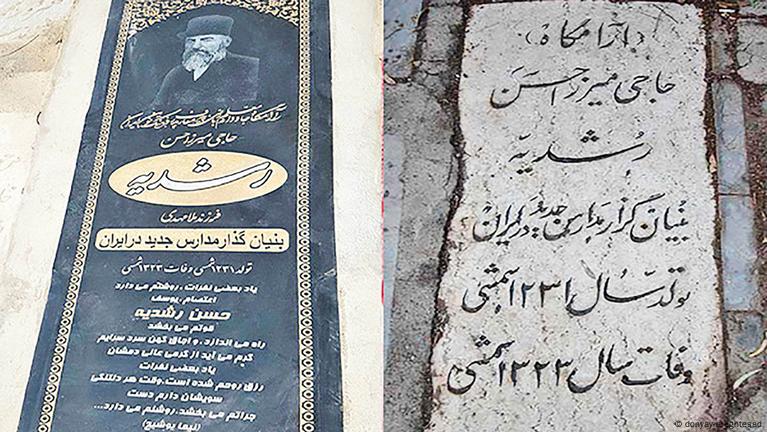 حاجی میرزا حسن
رشدیه
فرزند ملا مهدی
بنیان گذار مدارس جدید در ایران
تولد ۱۲۳۱ شمسی وفات ۱۳۲۳ شمسی
یاد بعضی نفرات، روشنم می دارد
اعتصام یوسف
حسن رشدیه
قوتم می بخشد
راه می اندازد، و اجاق کهن سرد سرایم
گرم می آید از گرمی عالی دمشان
یاد بعضی نفرات
رزق روحم شده است، وقت هر دلتنگی
سویشان دارم دست
جراتم می بخشد، روشنم می دارد...
(نیما یوشیج)
(آرامگاه)
حاجی میرزا حسن
رشدیه
بنیان گزار مدارس جدید در ایران
تولد سال ۱۲۳۱ شمسی
وفات سال ۱۳۲۳ شمسی